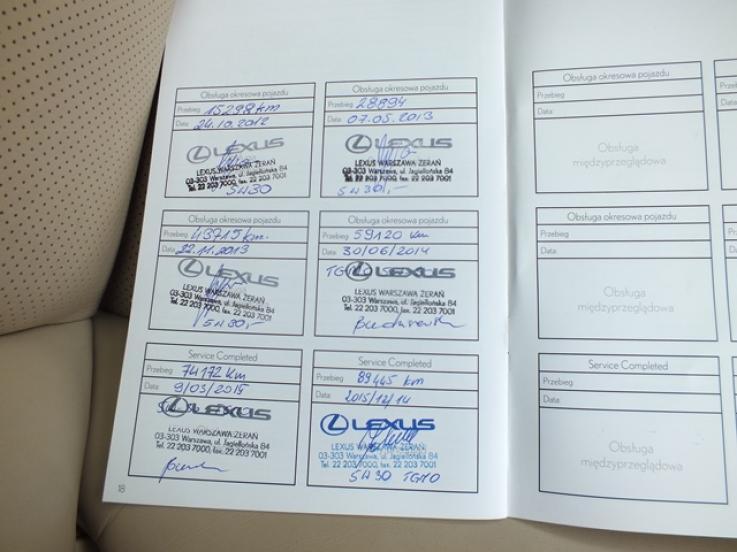 Obsługa okresowa pojazdu
Przebieg 15298 km
Data 24.10.2012
LEXUS
LEXUS WARSZAWA ŻERAŃ
03-303 Warszawa, ul. Jagiellońska 84
Tel. 22 203 7000, fax. 22 203 7001
5W30
Obsługa okresowa pojazdu
Przebieg 28894
Data 07.05.2013
LEXUS
LEXUS WARSZAWA ŻERAŃ
03-303 Warszawa, ul. Jagiellońska 84
Tel. 22 203 7000, fax. 22 203 7001
5W30,-
Obsługa okresowa pojazdu
Przebieg 43715 km.
Data 22.11.2013
LEXUS
LEXUS WARSZAWA ŻERAŃ
03-303 Warszawa, ul. Jagiellońska 84
Tel. 22 203 7000, fax. 22 203 7001
5W30,-
Obsługa okresowa pojazdu
Przebieg 59120 km
Data 30/06/2014
LEXUS
LEXUS WARSZAWA ŻERAŃ
03-303 Warszawa, ul. Jagiellońska 84
Tel. 22 203 7000, fax. 22 203 7001
Service Completed
Przebieg 74172 km
Data 9/03/2015
LEXUS
LEXUS WARSZAWA ŻERAŃ
03-303 Warszawa, ul. Jagiellońska 84
Tel. 22 203 7000, fax. 22 203 7001
Service Completed
Przebieg 89445 km
Data 2015/12/14
LEXUS
LEXUS WARSZAWA ŻERAŃ
03-303 Warszawa, ul. Jagiellońska 84
Tel. 22 203 7000, fax. 22 203 7001
5W30 TGMO
18
Obsługa okresowa pojazdu
Przebieg
Data
Obsługa
międzyprzeglądowa
Obsługa okresowa pojazdu
Przebieg
Data
Obsługa
międzyprzeglądowa
Service Completed
Przebieg
Data
Obsługa
międzyprzeglądowa